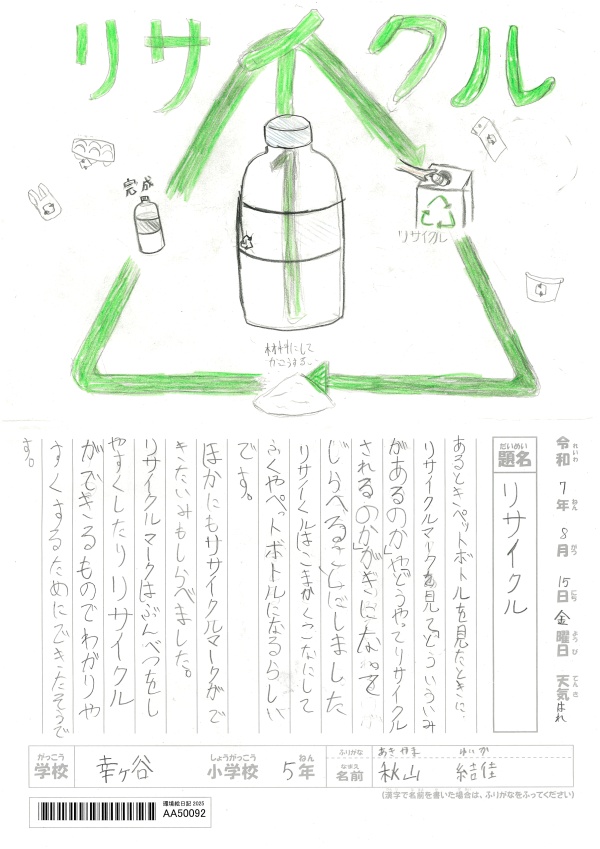 リサイクル
完成
リサイクル
材料にして
かこうする。
令和 7年 8月 15日 金曜日 天気 はれ
れいわ ねん がつ にち ようび てんき
だいめい
題名 リサイクル
あるときペットボトルを見たときに、
リサイクルマークを見て「どういういみ
があるのか」や「どうやってリサイクル
されるのか」がぎになったを
しらべることにしました
リサイくルはこまかくこなにして
ふくやペットボトルになるらしい
です。
ほかにもササイクルマークがで
きたいみもしらべました。
リサイクルマークはぶんべつをし
やすくしたりリサイクル
ができるものでわがりや
すくするためにできたそうで
す。
がっこう しょうがっこう ねん
学校 幸ヶ谷 小学校 5年
ふりがな あきやま ゆいか
なまえ
名前 秋山 結佳
(漢字で名前を書いた場合は、ふりがなをふってください)
環境絵日記 2025
AA50092